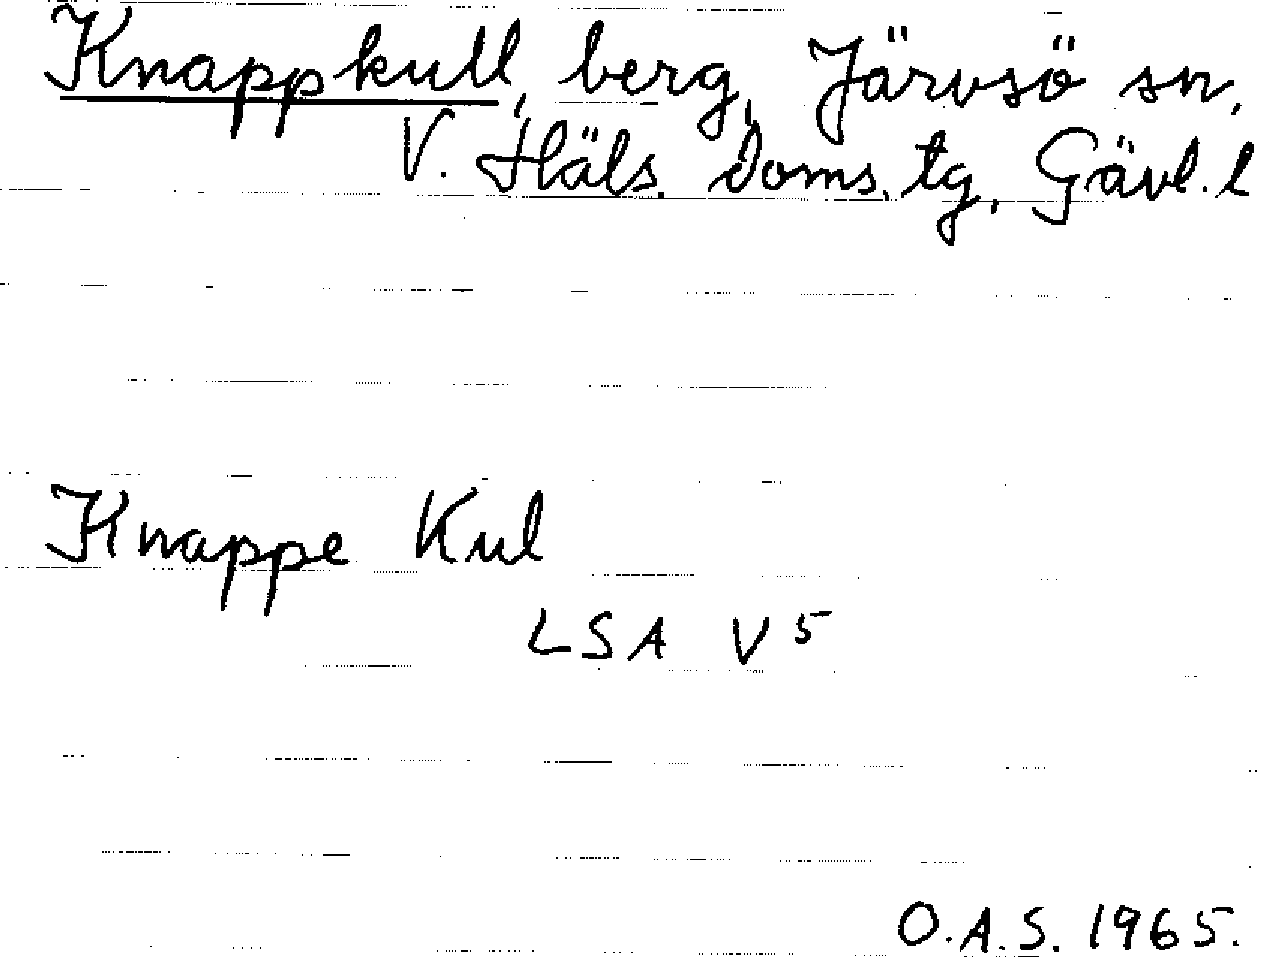 Knappkull, berg, Järvsö sn,
V. Häls. doms. tg, Gävl. l
Knappe Kul
LSA V5
O.A.S. 1965.